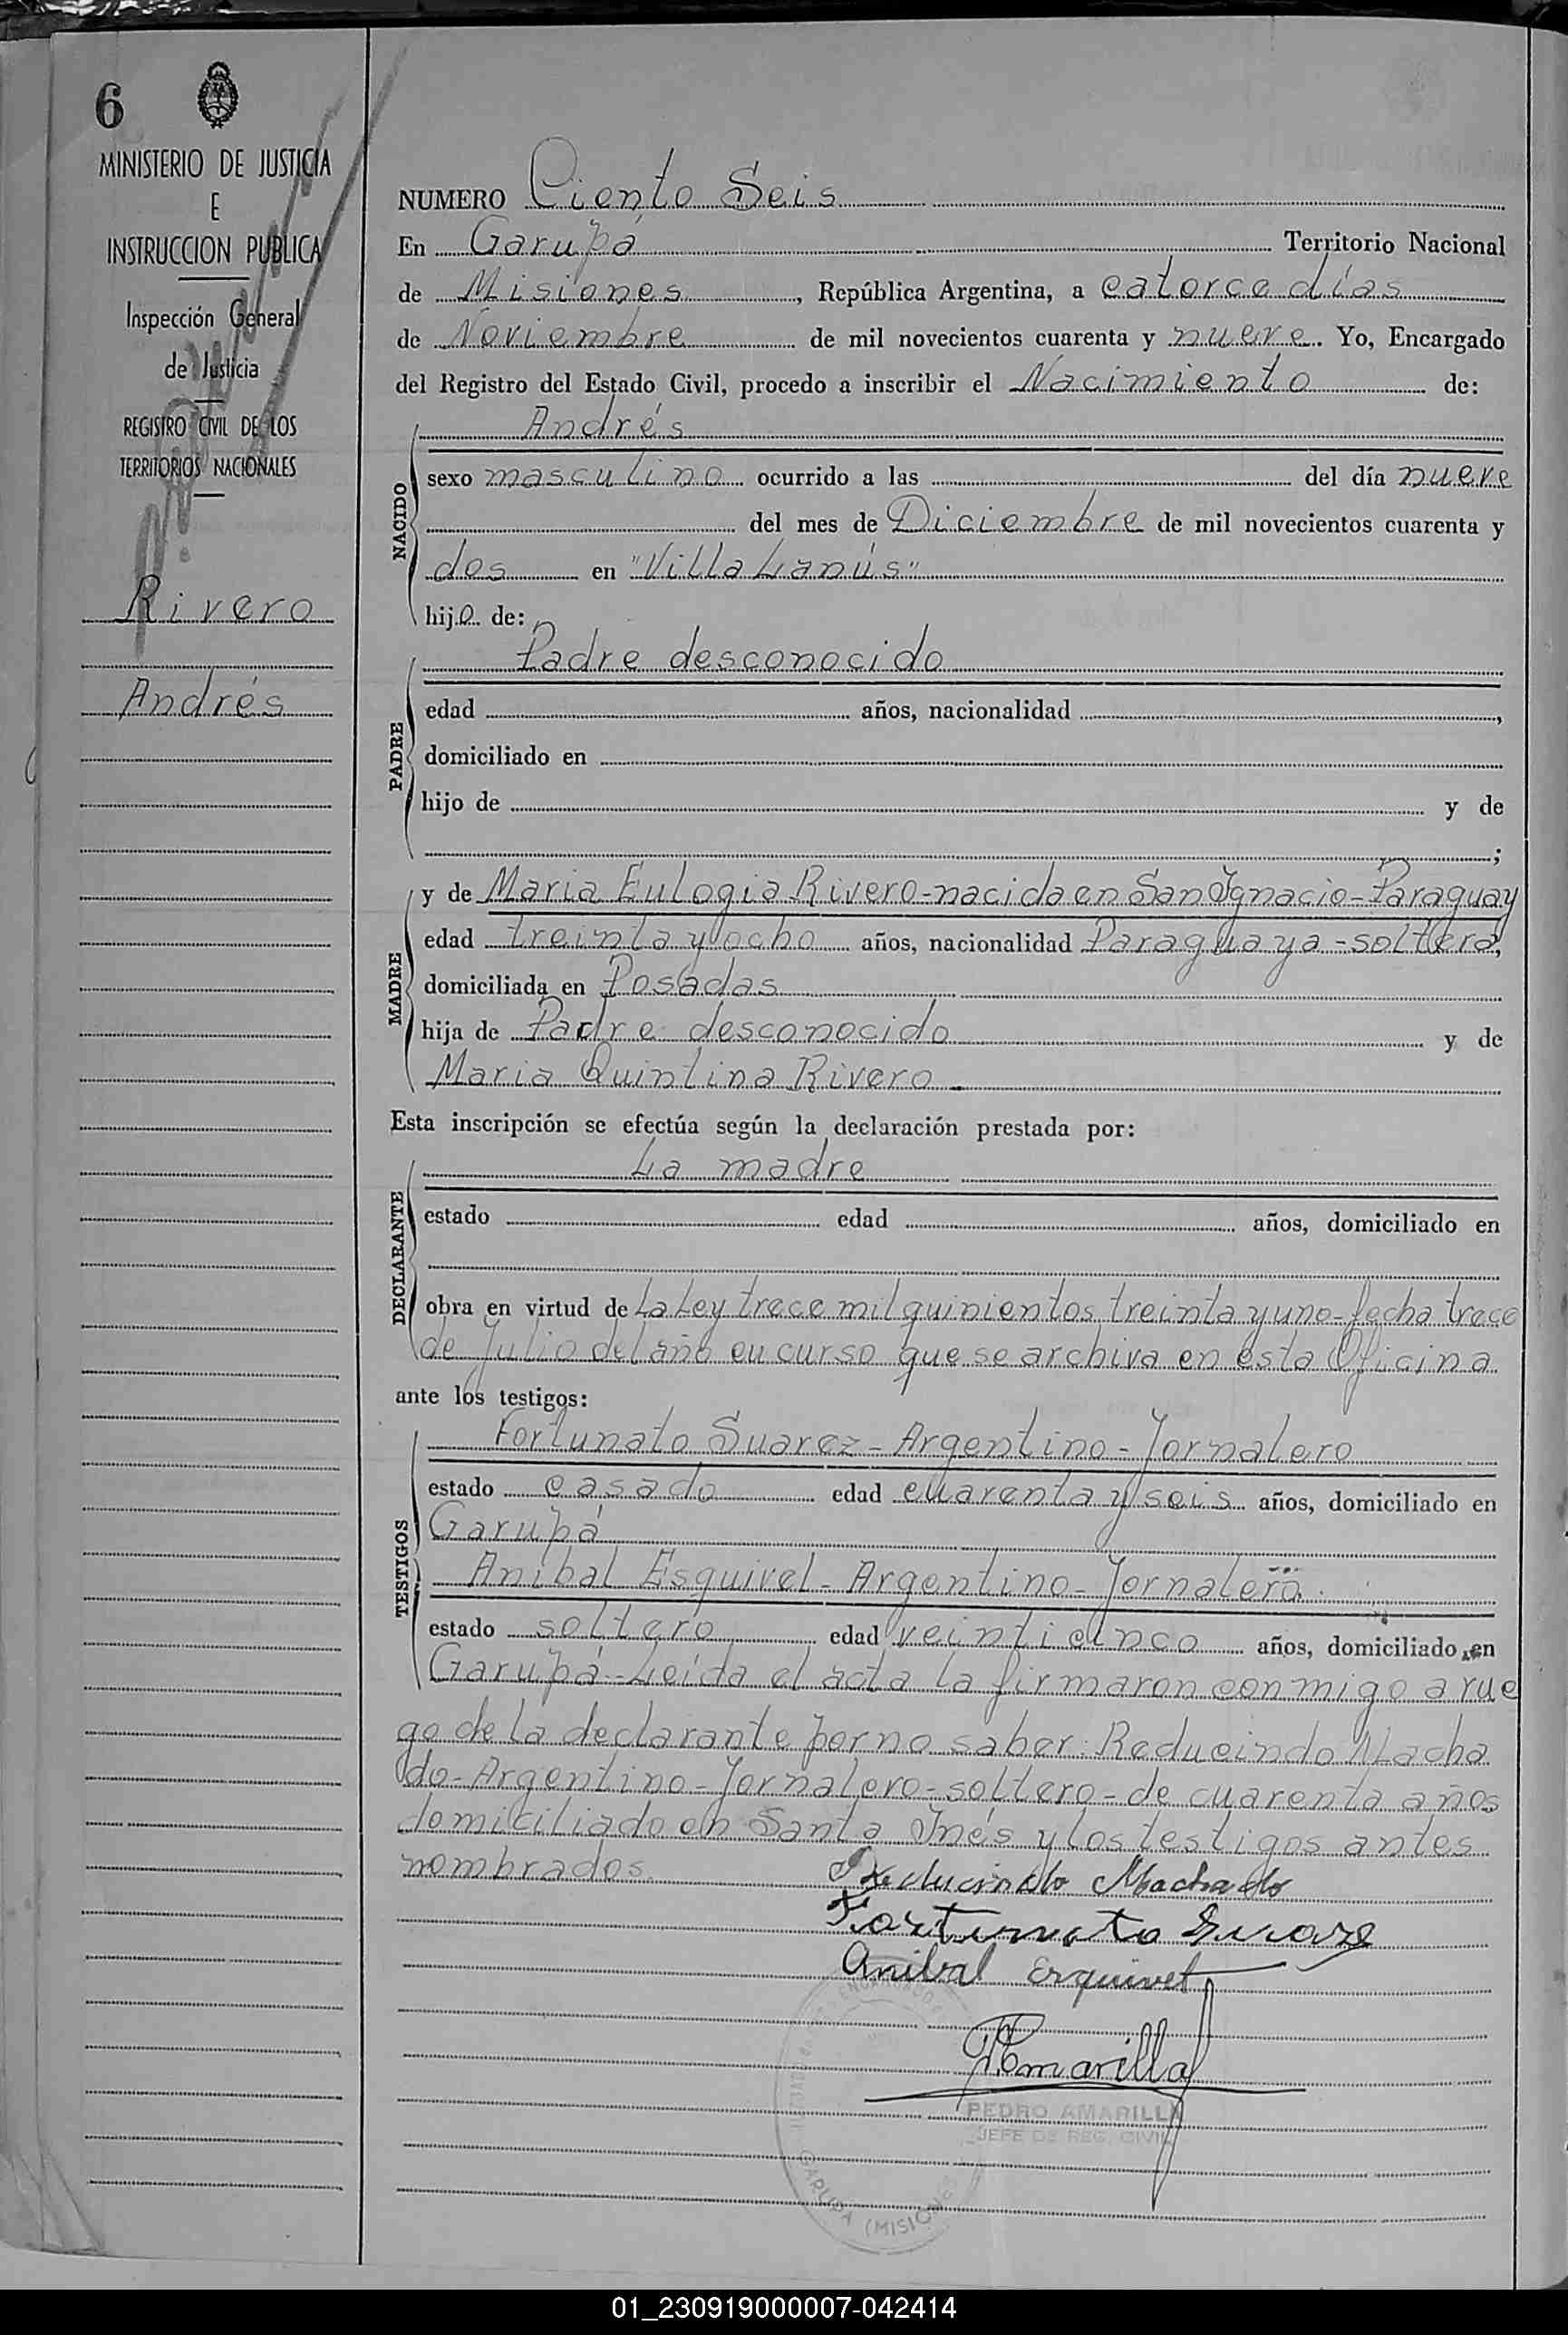 6
MINISTERIO DE JUSTICIA
E
INSTRUCCION PUBLICA
Inspección General
de Justicia
REGISTRO CIVIL DE LOS
TERRITORIOS NACIONALES
Rivero
Andrés
NUMERO Ciento Seis
En Garupá Territorio Nacional
de Misiones, República Argentina, a catorce días
de Noviembre de mil novecientos cuarenta y nueve. Yo, Encargado
del Registro del Estado Civil, procedo a inscribir el Nacimiento de:
NACIDO
Andrés
sexo masculino ocurrido a las del día nueve
del mes de Diciembre de mil novecientos cuarenta y
dos en "Villa Lanús"
hijo de:
PADRE
Padre desconocido
edad años, nacionalidad ,
domiciliado en
hijo de y de
;
MADRE
y de Maria Eulogia Rivero-nacida en San Ygnacio-Paraguay
edad treinta y ocho años, nacionalidad Paraguaya-soltera,
domiciliada en Posadas
hija de Padre desconocido y de
Maria Quintina Rivero
Esta inscripción se efectúa según la declaración prestada por:
DECLARANTE
La madre
estado edad años, domiciliado en
obra en virtud de La Ley trece mil quinientos treinta y uno-fecha trece
de Julio del año en curso que se archiva en esta Oficina
ante los testigos:
TESTIGOS
Fortunato Suarez-Argentino-Jornalero
estado casado edad cuarenta y seis años, domiciliado en
Garupá
Anibal Esquivel-Argentino-Jornalero
estado soltero edad veinticinco años, domiciliado en
Garupá-Leída el acta la firmaron conmigo a rue
go de la declarante por no saber: Reducindo Macha
do-Argentino-Jornalero-soltero-de cuarenta años
domiciliado en Santa Ynés y los testigos antes
nombrados.
Reducindo Machado
Fortunato Suarez
Anibal Esquivel
PAmarilla
PEDRO AMARILLA
JEFE DE REG. CIVIL
GARUPA (MISIONES)
01_230919000007-042414